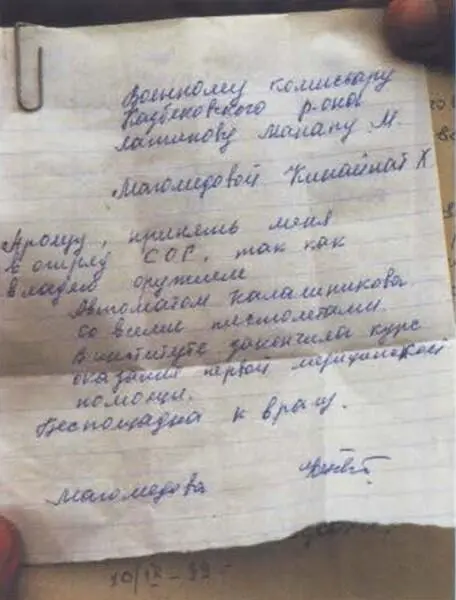 Военному комиссару
Казбековского р-она
Латипову Манапу М.
Магомедовой Кинайнат Х
Прошу, принять меня
в отряд СОГ, так как
владею оружием
Автоматом Калашникова
со всеми пистолетами.
В институте закончила курс
оказания первой медицинской
помощи.
Беспощадна к врагу.
Магомедова
10/IX-99-